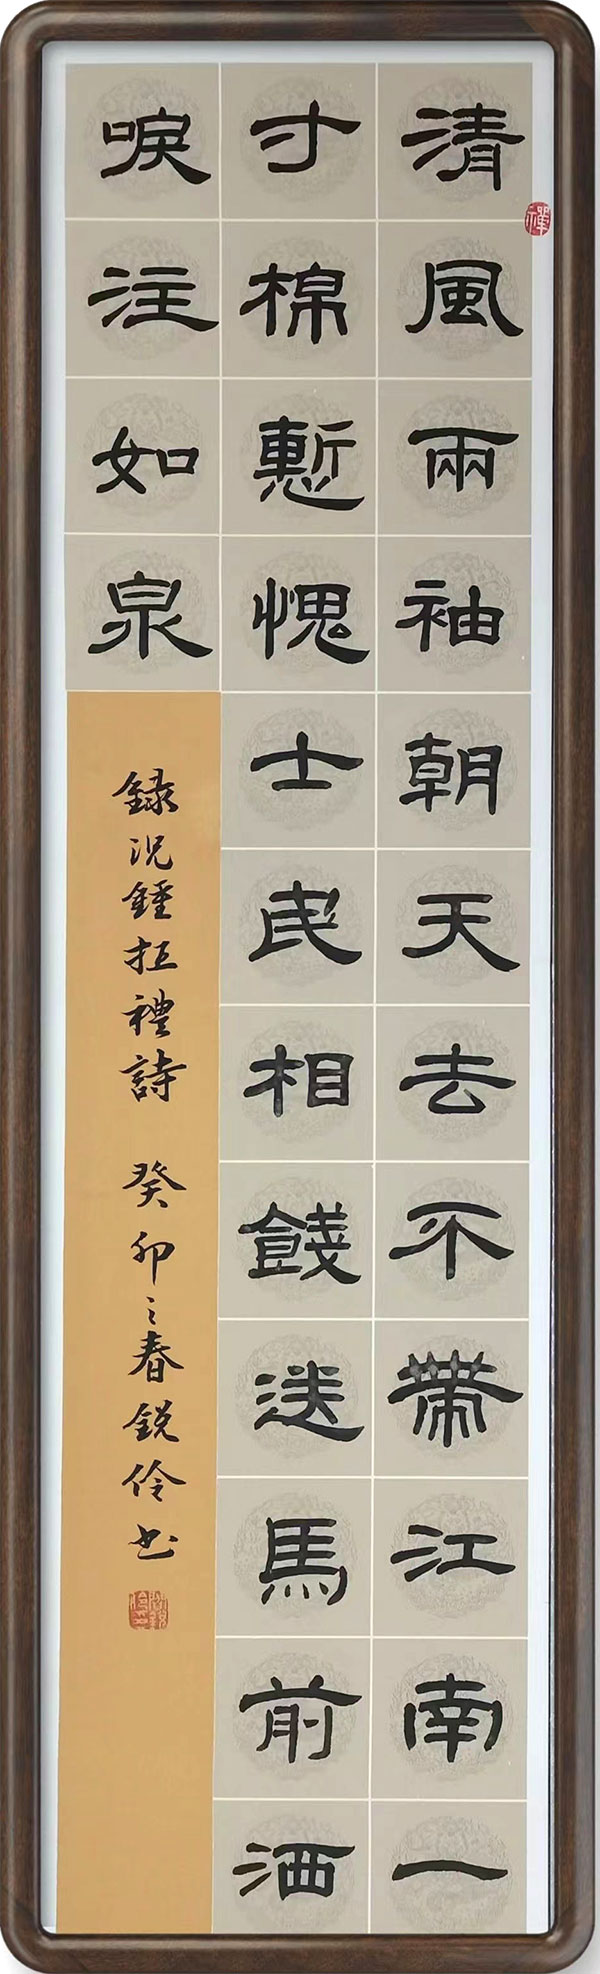 清風兩袖朝天去不帶江南一
寸棉慙愧士民相餞送馬前洒
唳注如泉
錄況鍾拒禮詩 癸卯之春銳伶书
禪